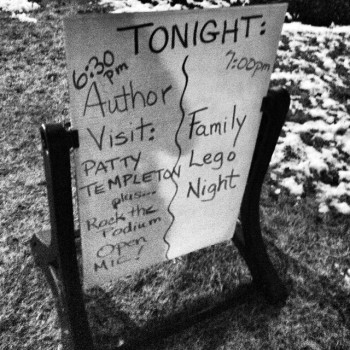 TONIGHT:
6:30 pm
Author
Visit:
PATTY
TEMPLETON
plus...
Rock the
Podium
Open
MIC!
7:00pm
Family
Lego
Night